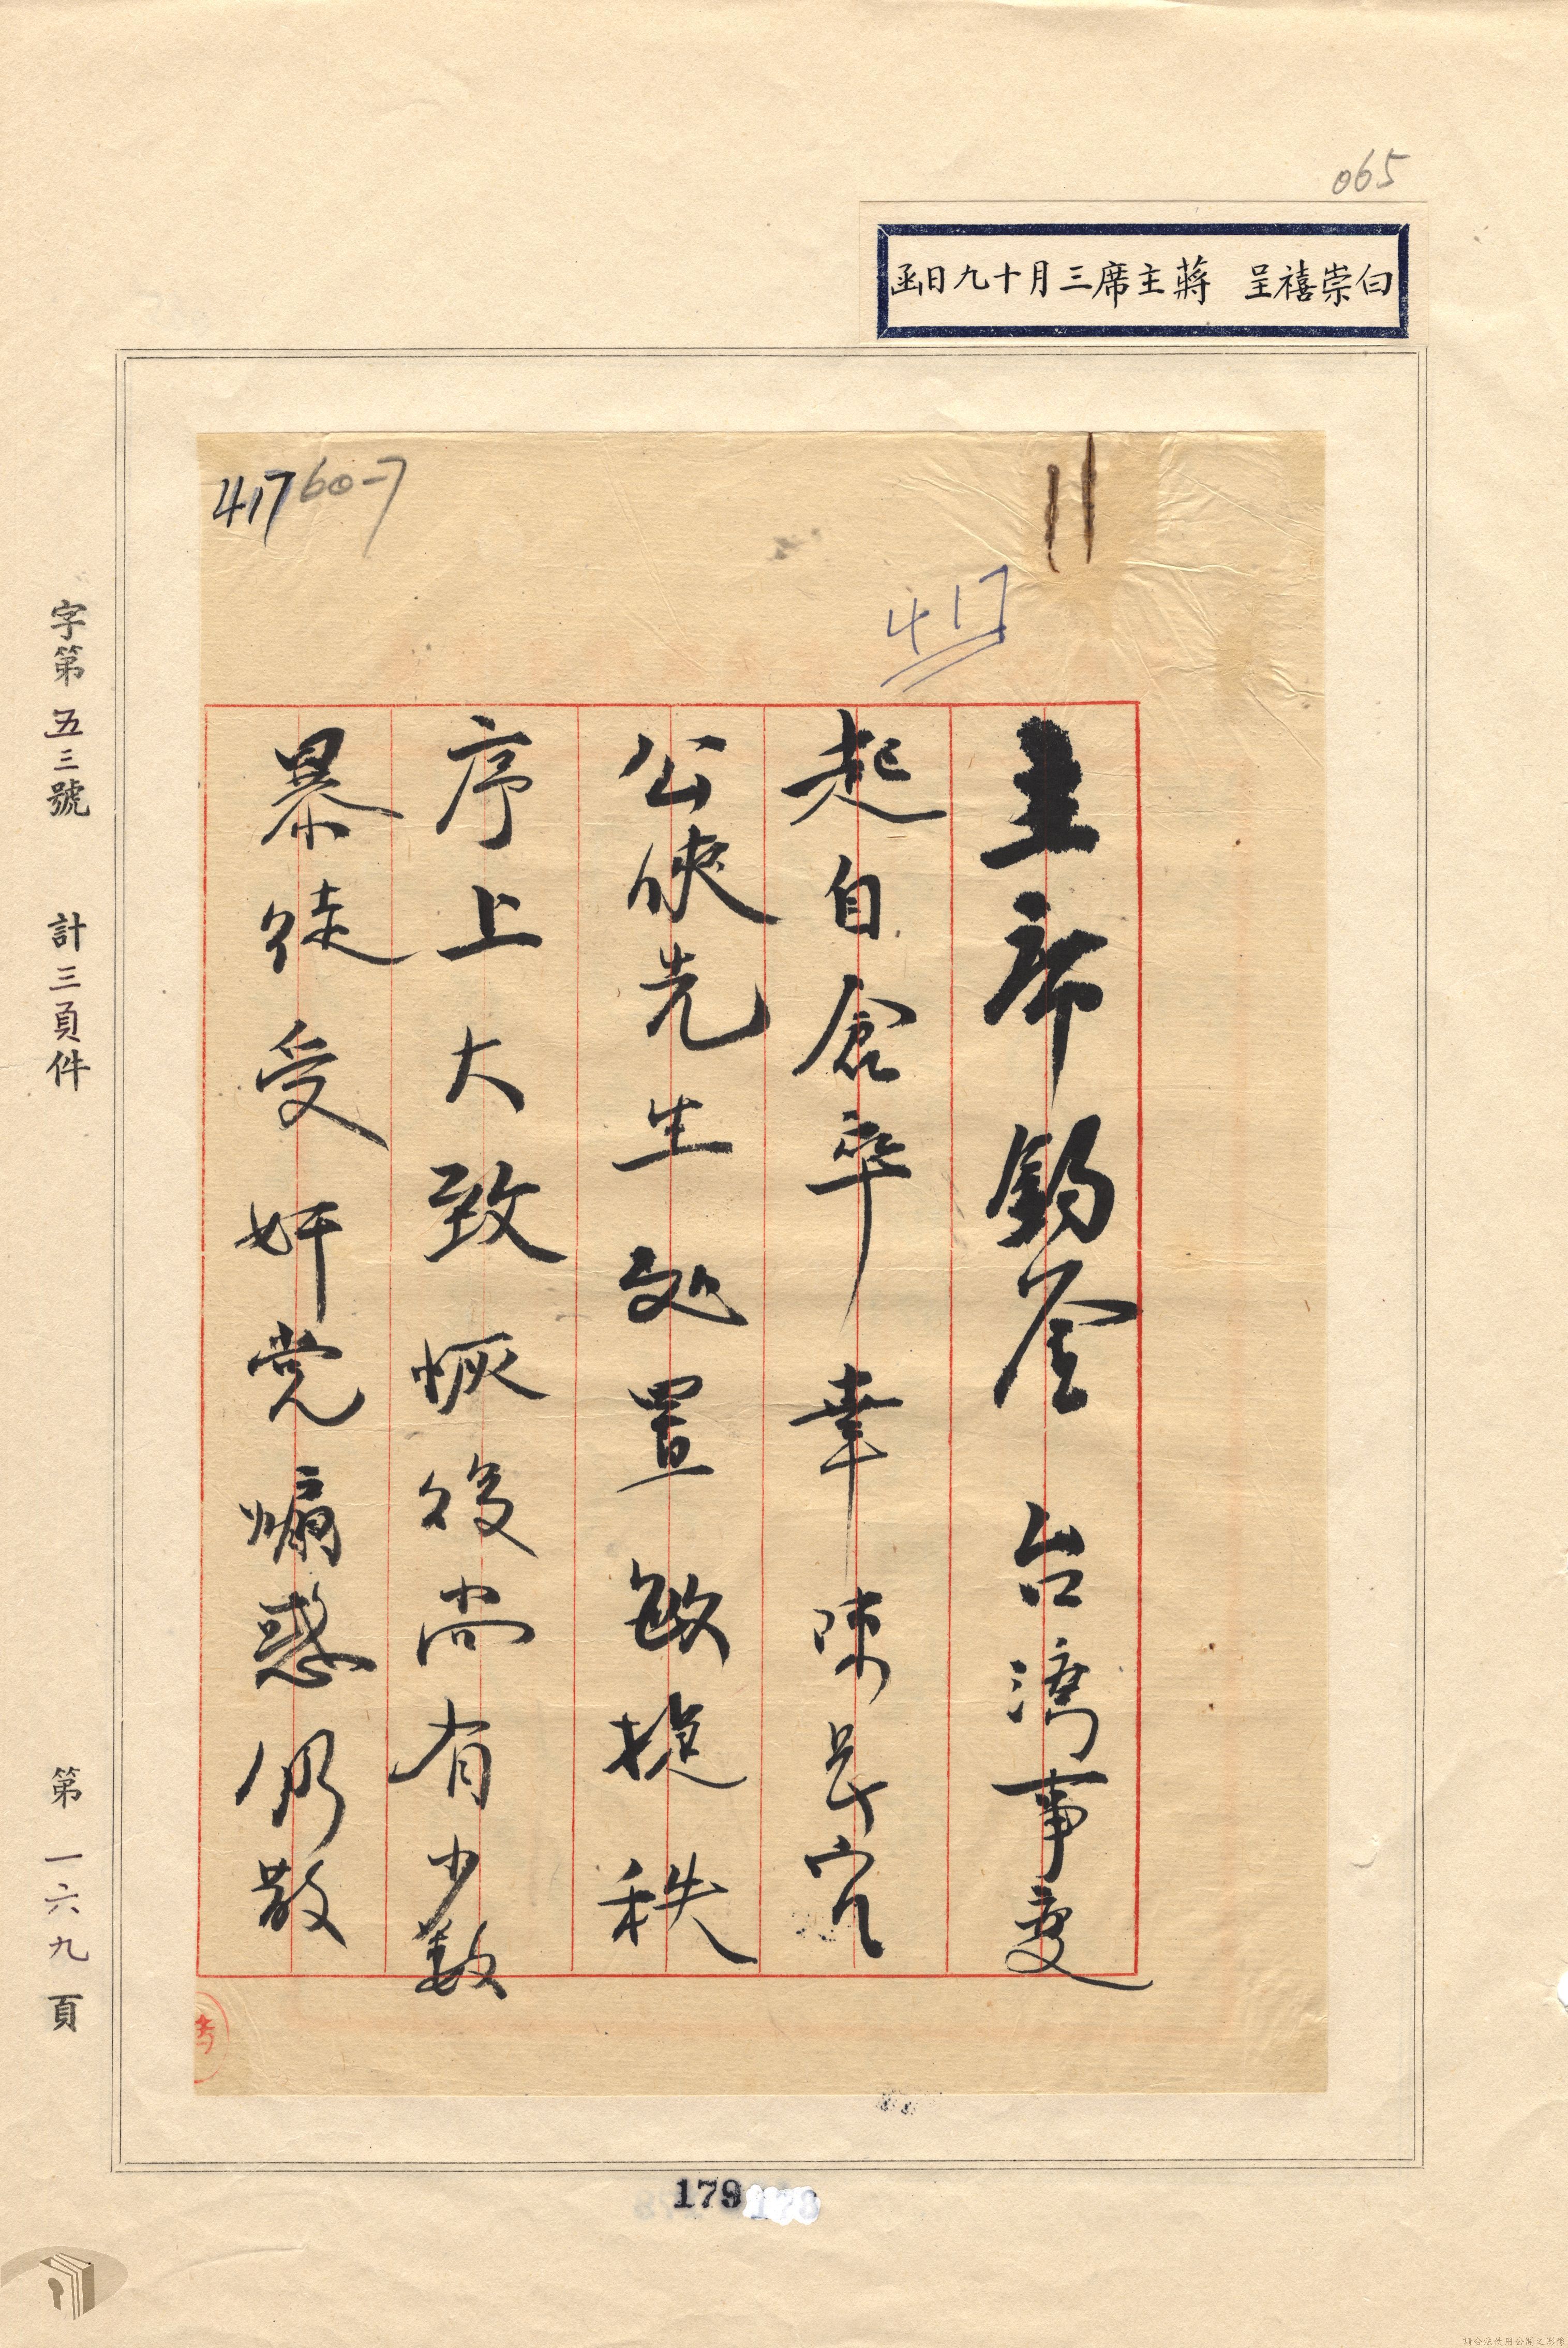 065
白崇禧呈 蔣主席三月十九日函
41760-7
417
主席鈞鑒 台灣事變
起自倉卒 幸陳長官
公俠先生处置敏捷秩
序上大致恢復尚有少数
暴徒受奸党煽惑仍散
字第五三號 計三頁件 第一六九頁
179
請合法使用公開之影像